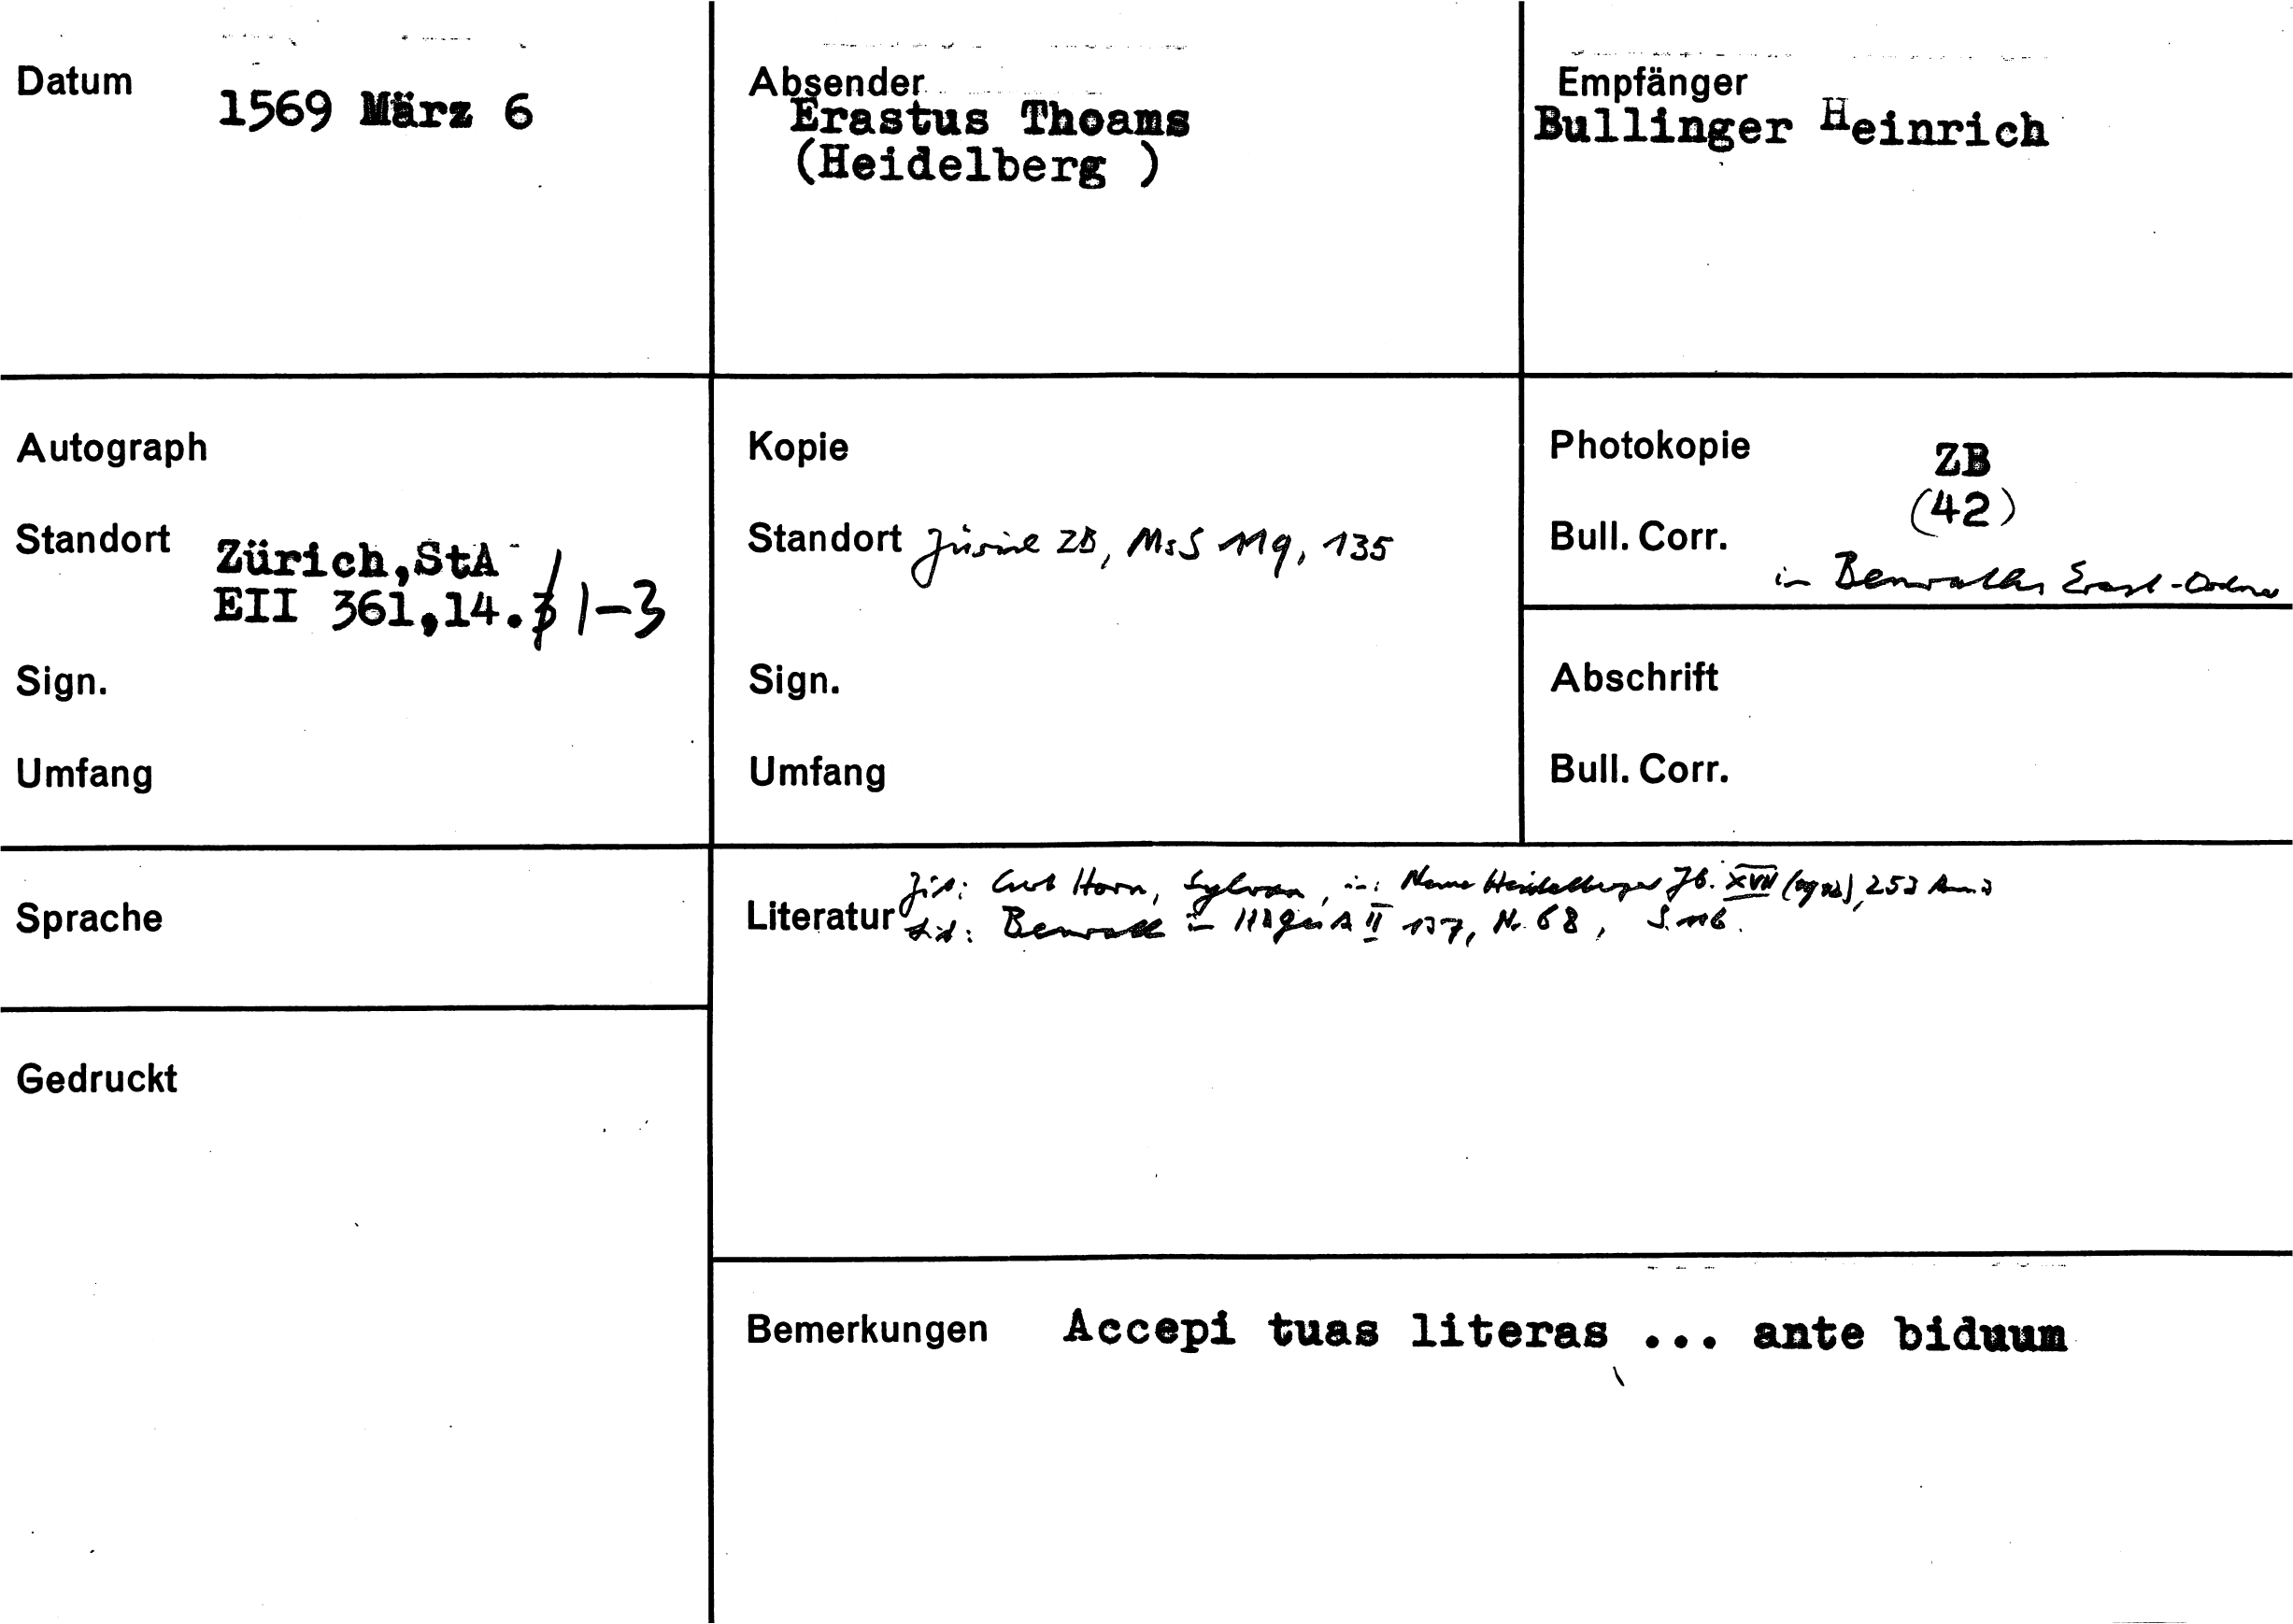 Datum
1569 März 6
Absender
Erastus Thoams
(Heidelberg )
Empfänger
Bullinger Heinrich
Autograph
Standort
Zürich,StA
EII 361,14. 1-3
Sign.
Umfang
Kopie
Standort ZB, MsS 119, 135
Sign.
Umfang
Photokopie ZB
(42)
Bull. Corr.
in
Abschrift
Bull. Corr.
Sprache
Gedruckt
Literatur
Zit: Horn, Sylvan, in: Heidelberger Jb. XVII 253
in II 137, Nr. 68, S. 116.
Bemerkungen Accepi tuas literas ... ante biduum